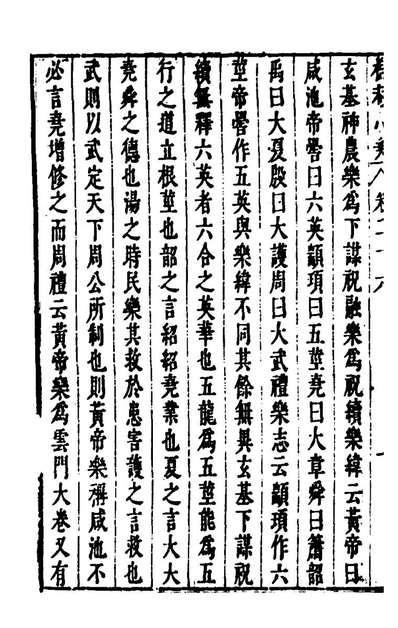 卷二十六
玄基神農樂爲下謀祝融樂爲祝續樂緯云黃帝曰
咸池帝嚳曰六英顓頊曰五莖堯曰大章舜曰簫韶
禹曰大夏殷曰大護周曰大武禮樂志云顓頊作六
莖帝嚳作五英與樂緯不同其餘無異玄基下謀祝
續無釋六英者六合之英華也五龍爲五莖能爲五
行之道立根莖也韶之言紹紹堯業也夏之言大大
堯舜之德也湯之時民樂其救於患害護之言救也
武則以武定天下周公所制也則黃帝樂稱咸池不
必言堯增修之而周禮云黃帝樂爲雲門大卷又有